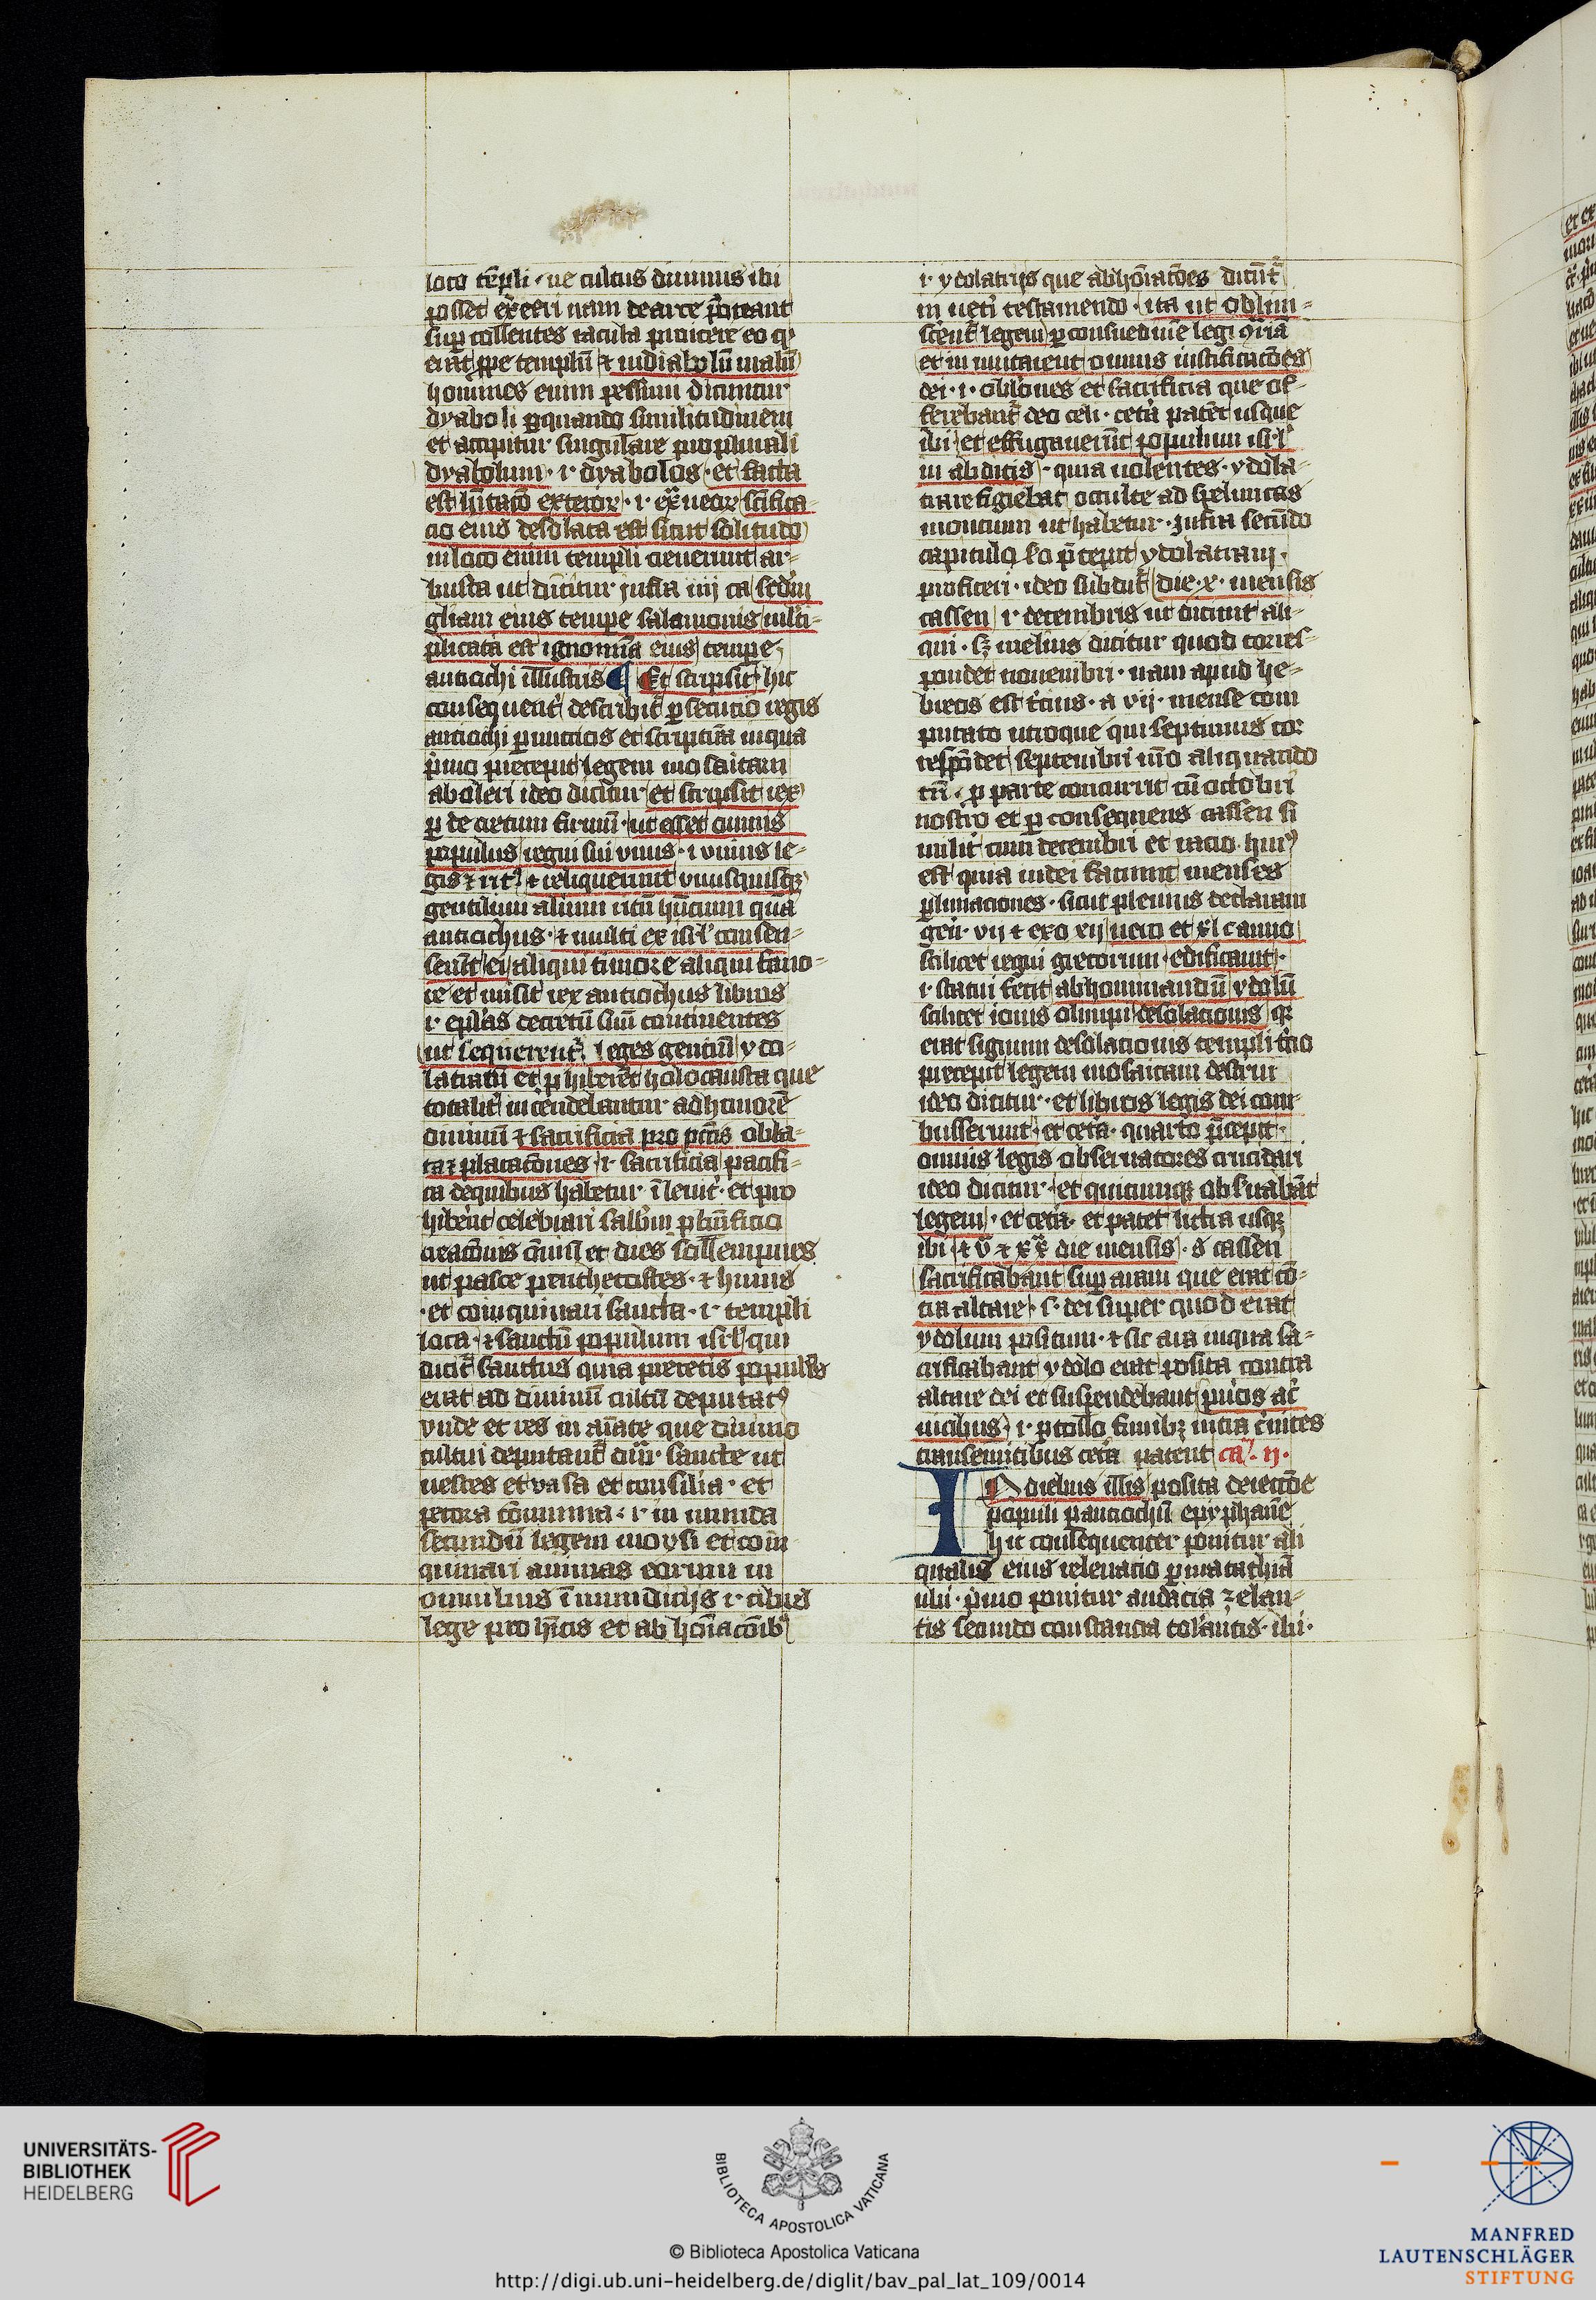 loco tēpli · ne cultus diuinus ibi
posset ex̄erci nam de arce poterant
sup tollentes iacula proicere eo q
erat ꝓpe templū ⁊ in diabolū malū
homines enim pessimi dicuntur
dyaboli ꝑ quandā similitudinem
et accipitur singulare pro plurali
dyabolum · i · dyabolos · et facta
est hītacō exterorꝝ · i · exūeorꝝ scīfica
cio eius desolata est sicut solitudo
in loco enim templi creuerunt ar-
busta ut dicitur infra iiij ca sc̄dm
gliam eius tempe salamonis multi-
plicata est ignomīa eius tempe
antiochi illustris Et scripsit hic
consequent̄ describit̄ ꝑsecucio regis
antiochi ꝑ nuncios et scripturā in qua
p̄mo precepit legem mosaicam
aboleri ideo dicitur et scripsit rex
ꝑ decretum firmū · ut esset omnis
populus regni sui vnus · i vnius le-
gis ⁊ rit⁹ ⁊ reliquerunt vnusquisqꝫ
gentilium alium ritū huncum quā
antiochus · ⁊ multi ex isr̄l consen-
serūt ei aliqui timore aliqui fauo-
re et misit rex antiochus libros
i · ep̄las decretū suū continentes
ut sequerent̄ leges gentiū ydo-
latratū et ꝓhiberēt holocausta que
totalit̄ incendebantur ad honorē
diuinū ⁊ sacrificia pro pctīs obla-
ta ⁊ placatōnes · i · sacrificia pacifi-
ca de quibus habetur ī leuit̄ · et pro
hiberēt celebrari sabbm ꝓ bn̄ficio
creacōnis cōmisi et dies sollempnes
ut pasce penthecostes · ⁊ huius
· et coinquinari sancta · i · templi
loca · ⁊ sanctū populum isr̄l qui
dicit̄ sanctus quia pre cetis populis
erat ad diuinū cultū deputat⁹
vnde et res inaīate que diuino
cultui deputant̄ dnr̄ · sancte ut
vestes et vasa et consilia · et
pecora cōmunia · i · in munda
secundū legem moysi et coin-
quinari animas eorum in
omnibus īmundicijs i · cibis
lege prohitis et abhōiacōib⁹
i · ydolatrijs que abhōiatōes dicūt̄
in ueti testamendo · ita ut obliui-
scent̄ legem ꝑ consuedinē legi 9riā
et inmutarent omnes iustificacōes
dei · i · oblōnes et sacrificia que of-
ferebant̄ deo celi · cetā patēt usque
ibi et effugauerūt populum isr̄l
in abditis · quia nolentes · ydola-
trare fugiebāt occulte ad speluncas
moncium ut habetur · infra secūdo
capitulo secō p̄cepit ydolatriam
profiteri · ideo subdit̄ die · x · mensis
cassen i · decembris ut dicunt ali-
qui · sꝫ melius dicitur quod corres-
pondet nouembri · nam apud he-
breos est tcius · a vij · mense com
putato utroque qui septimus cor
respōdet septembri uno aliquando
tn̄ · ꝓ parte concurrit cū octobri
nostro et ꝑ consequens cassen si
milit̄ cum decembri et racio hui⁹
est quia iudei faciunt menses
ꝑ lunaciones · sicut plenius declaraui
gen̄ · vij ⁊ exo xij uero et xl c anno
scilicet regni grecorum edificauit ·
i · statui fecit abhominandū ydolū
scilicet iouis olimpi desolacionis qꝫ
erat signum desolacionis templi tcio
precepit legem mosaicam destrui
ideo dicitur · et libros legis dei com-
busserunt · et cetā · quarto p̄cepit
omnis legis obseruatores trucidari
ideo dicitur · et quicumqꝫ obseruabāt
legem · et cetā · et patet littera usqꝫ
ibi ⁊ v̄ ⁊ xx̄ die mensis · s cassen
sacrificabant sup aram que erat cō-
tra altare · s · dei super quod erat
ydolum positum · ⁊ sic ara in qua sa-
crificabant ydolo erat posita contra
altare dei et suspendebant pueros a c̄
uicibus i · ꝑ collo funibꝫ intra ciuites
transeuntibus cetā patent ca · ij ·
In diebus illis posita deiectōe
populi ꝑ antiochū epyphanē
hic consequenter ponitur ali
qualis eius releuacio ꝑ matathiā
ubi · p̄mo ponitur audacia zelan-
tis secundo constancia tolantis · ibi ·
UNIVERSITÄTS-
BIBLIOTHEK
HEIDELBERG
BIBLIOTECA APOSTOLICA VATICANA
© Biblioteca Apostolica Vaticana
http://digi.ub.uni-heidelberg.de/diglit/bav_pal_lat_109/0014
MANFRED
LAUTENSCHLÄGER
STIFTUNG